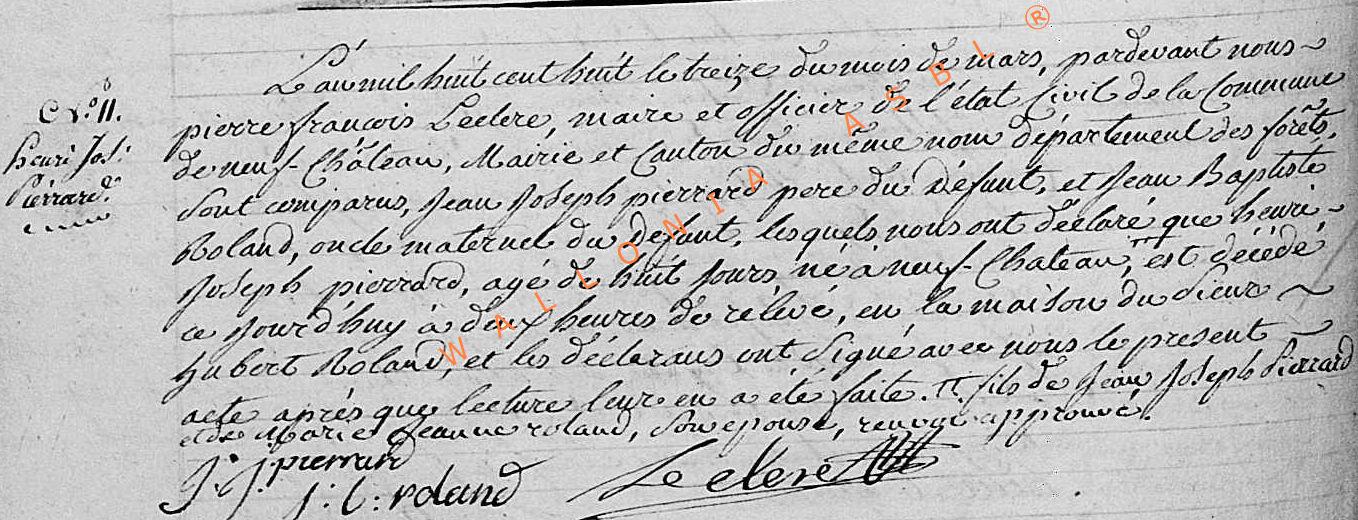 L'an mil huit cent huit le treize du mois de mars, pardevant nous ~
N.° 11.
henri Jos.
Pierrard.
pierre françois Leclere, maire et officier de l'état Civil de la Commune
de neuf-Château, Mairie et Canton du même nom département des forêts,
Sont comparus, Jean Joseph pierrard pere du Défunt, et Jean Baptiste
Roland, oncle maternel du défunt, lesquels nous ont déclaré que henri -
Joseph pierrard, agé de huit Jours, né à neuf-Chateau, π est décédé
ce Jourd'huy à deux heures de relevé, en la maison du Sieur ~
hubert Roland, et les déclarans ont Signé avec nous le present ~
acte après que lecture leur en a été faite. π. fils de Jean Joseph Pierrard
et de Marie Jeanne roland, Son epouse, renvoi approuvé.
J. J. pierrard
J: b: roland
Leclere
WALLONIA ASBL ®